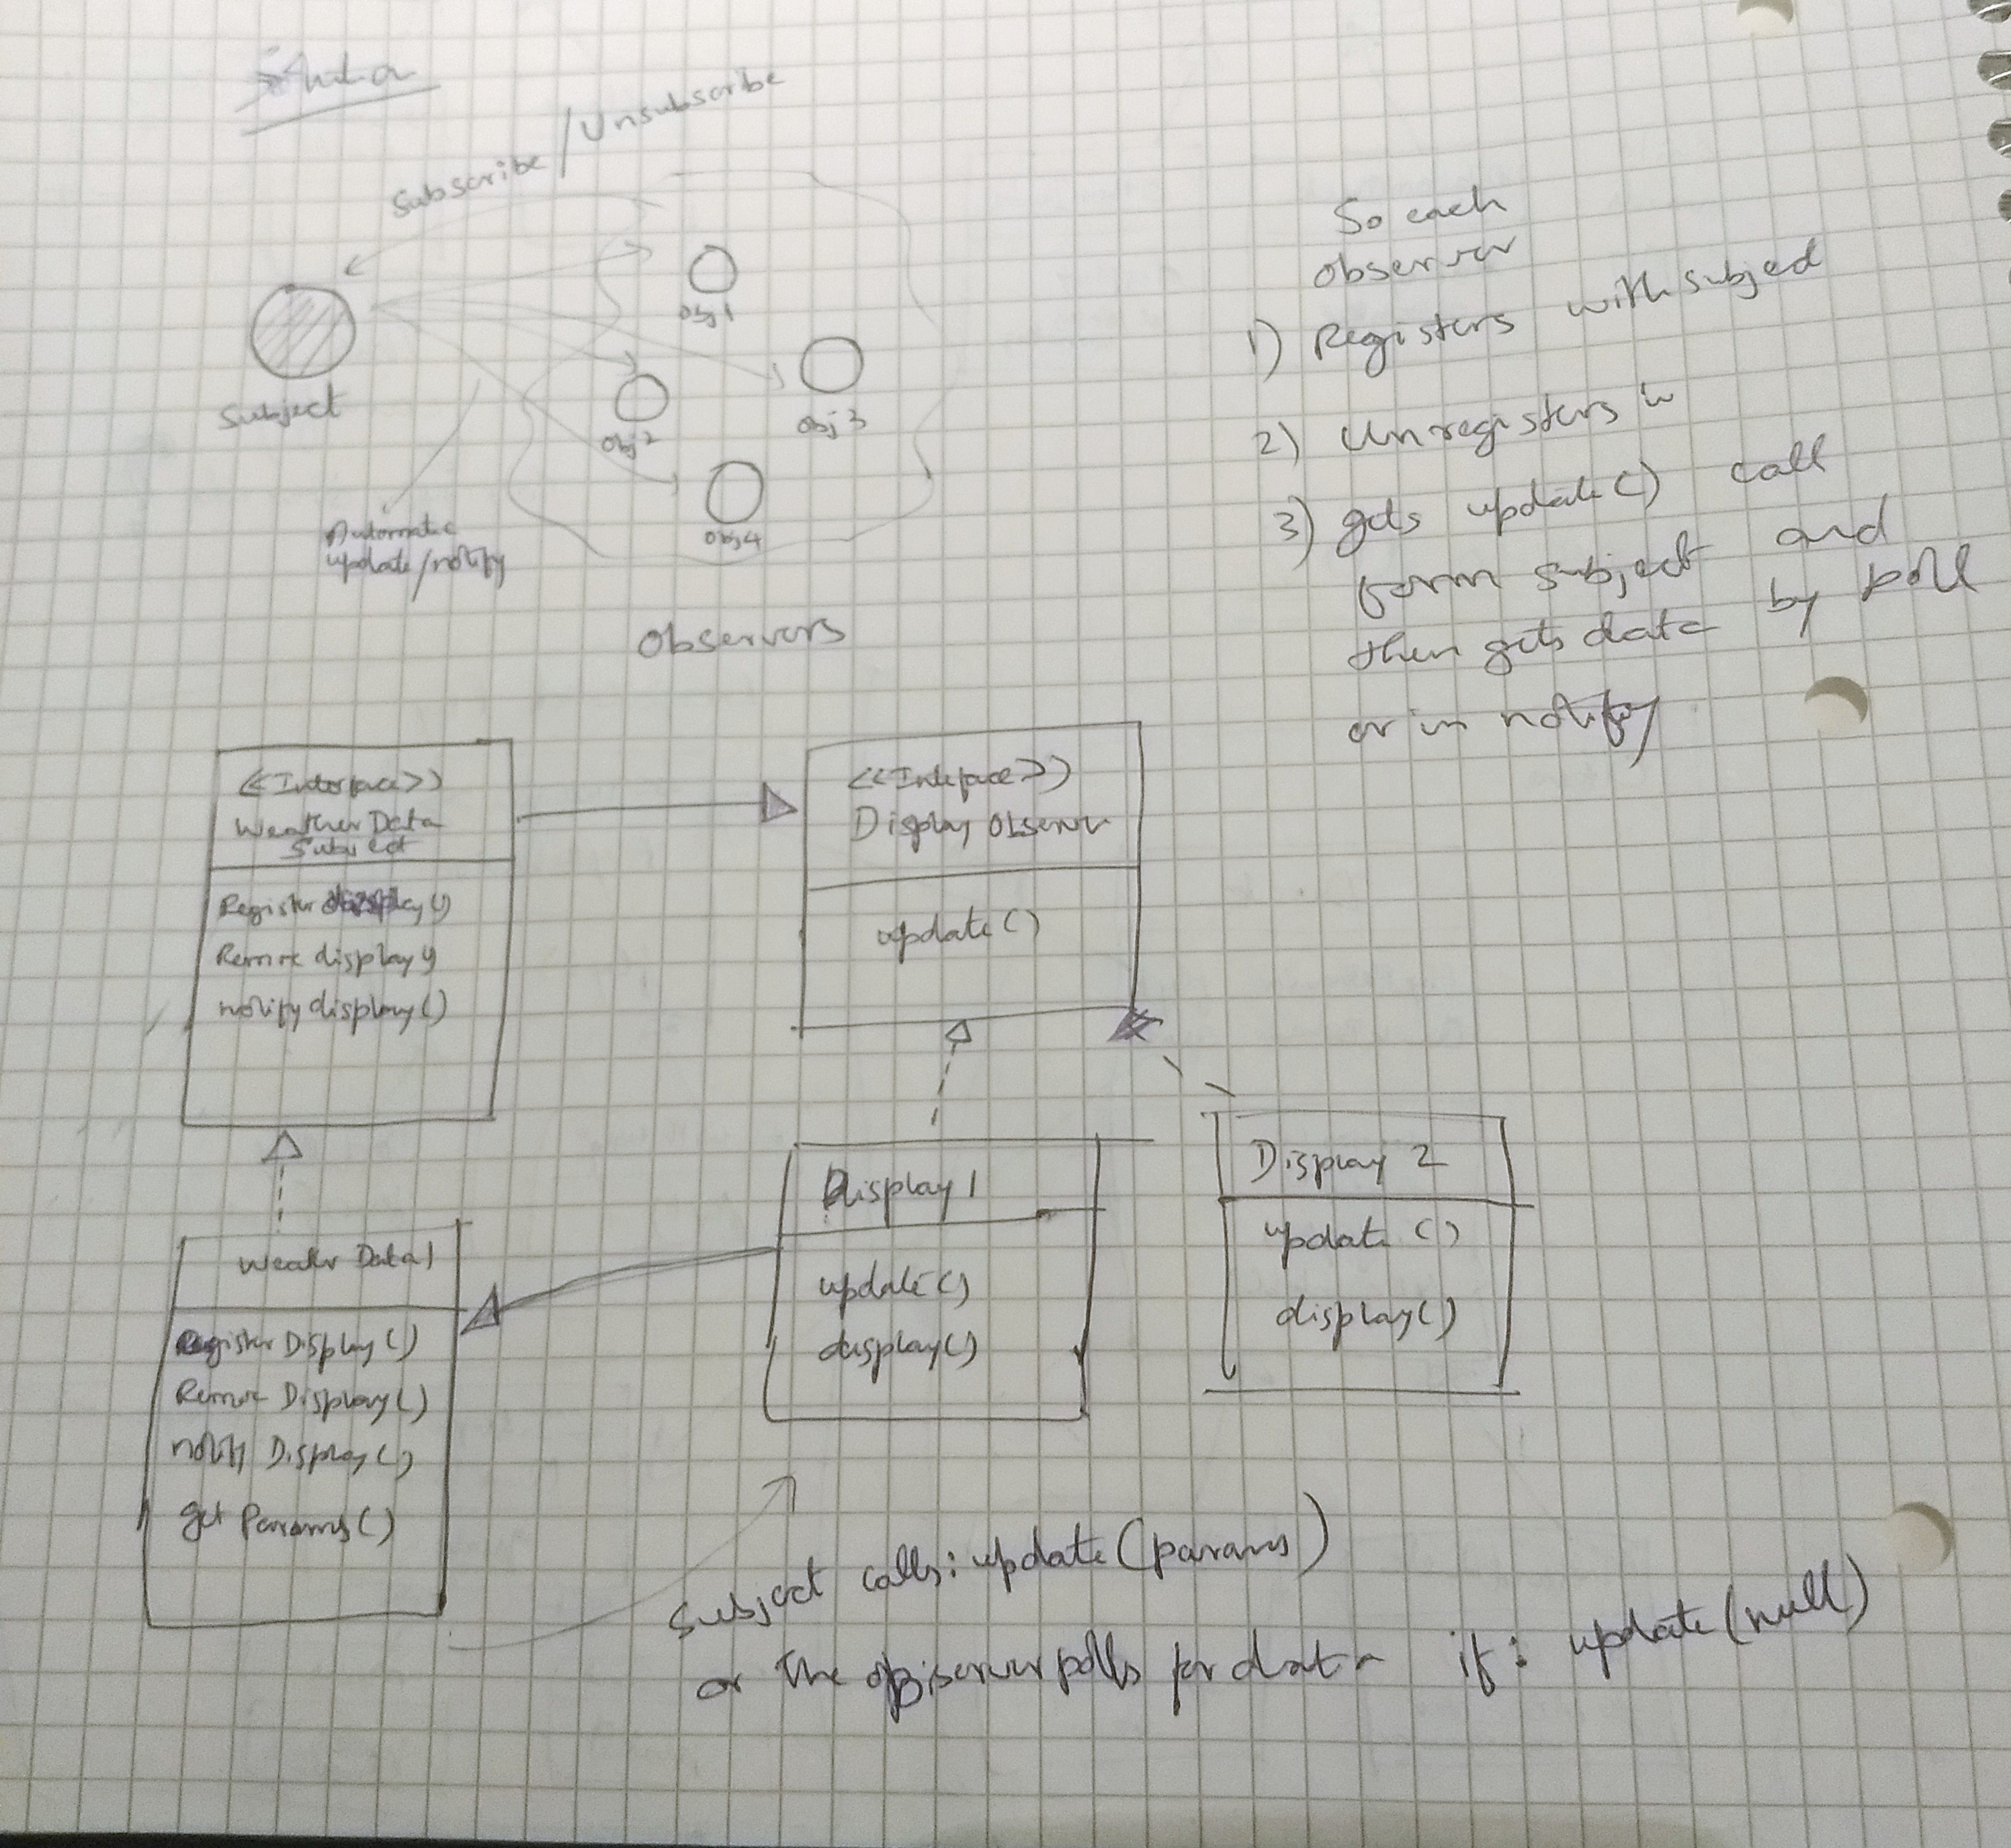 Subscribe / Unsubscribe
Subject
Obj1
Obj2
Obj3
Obj4
Automatic
update/notify
Observers
So each
observer
1) Registers with subject
2) Unregisters "
3) gets update() call
form subject and
then gets data by poll
or in notify
<<Interface>>
Weather Data
Subject
Register display()
Remove display()
notify display()
<<Inteface>>
Display Observer
update()
Weather Data1
Register Display()
Remove Display()
notify Display()
get Params()
Display 1
update()
display()
Display 2
update ()
display()
Subject calls: update (params)
or the observer polls for data if: update (null)